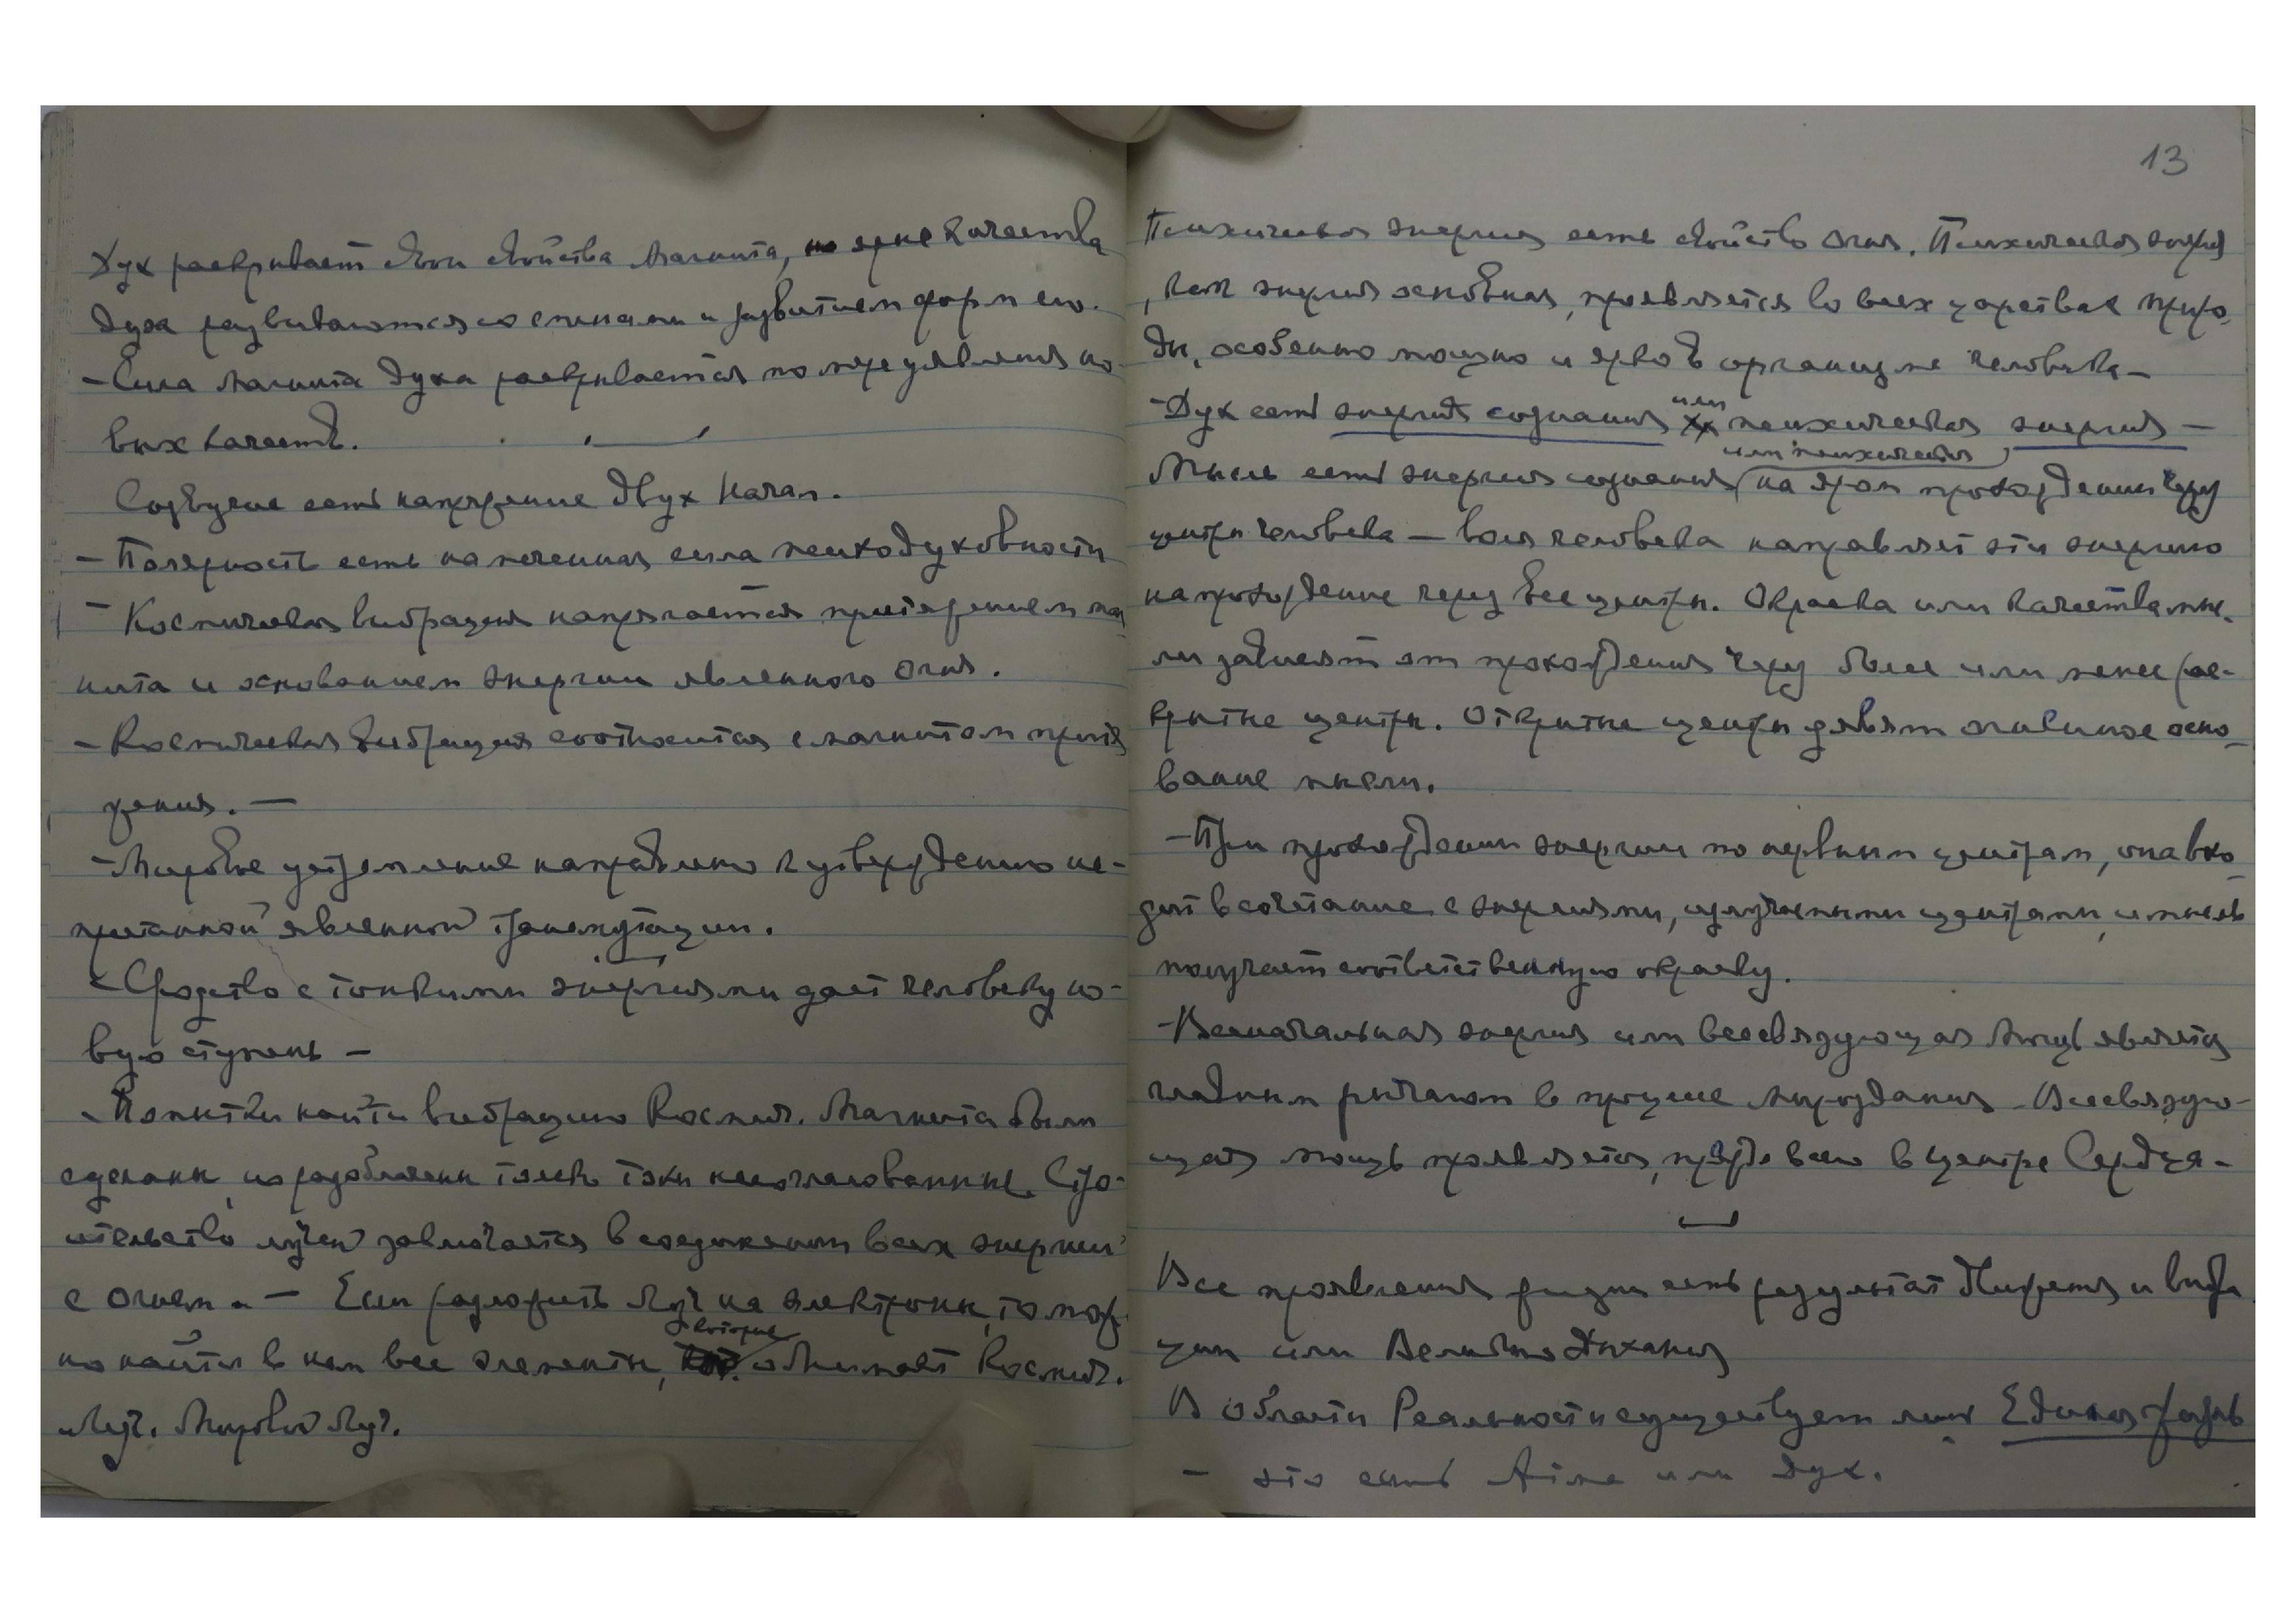 Дух раскрывает свои свойства Магнита, но яркие качества
духа развиваются со сменами и развитием форм его.
- Сила магнита духа раскрывается по мере уявления но-
вых качеств.
Созвучие есть напряжение двух Начал.
- Полярность есть намеченная сила психодуховности
- Космическая вибрация напрягается притяжением маг
нита и основанием энергии явленного огня.
- Космическая вибрация соотносится с магнитом притя
жения. -
- Мировое устремление направлено к утверждению не-
престанной явленной трансмутации.
- Сродство с тонкими энергиями дает человеку но-
вую ступень -
- Попытки найти вибрацию Космич. Магнита были
сделаны, но разоблачены токи несогласованные. Стро-
ительство лучей заключается в соединении всех энергий
с огнем. - Если разложить Луч на электроны, то мож-
но найти в нем все элементы, которые обнимает Космич.
Луч. Мировой Луч.
13
Психическая энергия есть свойство огня. Психическая энергия
, как энергия основная, проявляется во всех царствах приро-
ды, особенно мощно и ярко в организме человека -
- Дух есть энергия сознания или психическая энергия -
или психическая
Мысль есть энергия сознания на ярком прохождении через
центры человека - воля человека направляет эти энергию
на прохождение через все центры. Окраска или качества мыс-
ли зависят от прохождения через более или менее рас-
крытые центры. Открытые центры уявят огненное осно-
вание мысли.
- При прохождении энергии по нервным центрам, она вхо-
дит в сочетание с энергиями, излучаемыми центрами, и мысль
получает соответственную окраску.
- Всеначальная энергия или всесвязующая мощь является
главным рычагом в процессе мироздания - Всесвязую-
щая мощь проявляется, прежде всего в центре Сердца -
Все проявления жизни есть результат Движения и вибра
ции или Великого Дыхания
В области Реальности существует лишь Единая жизнь
- это есть Атма или Дух.